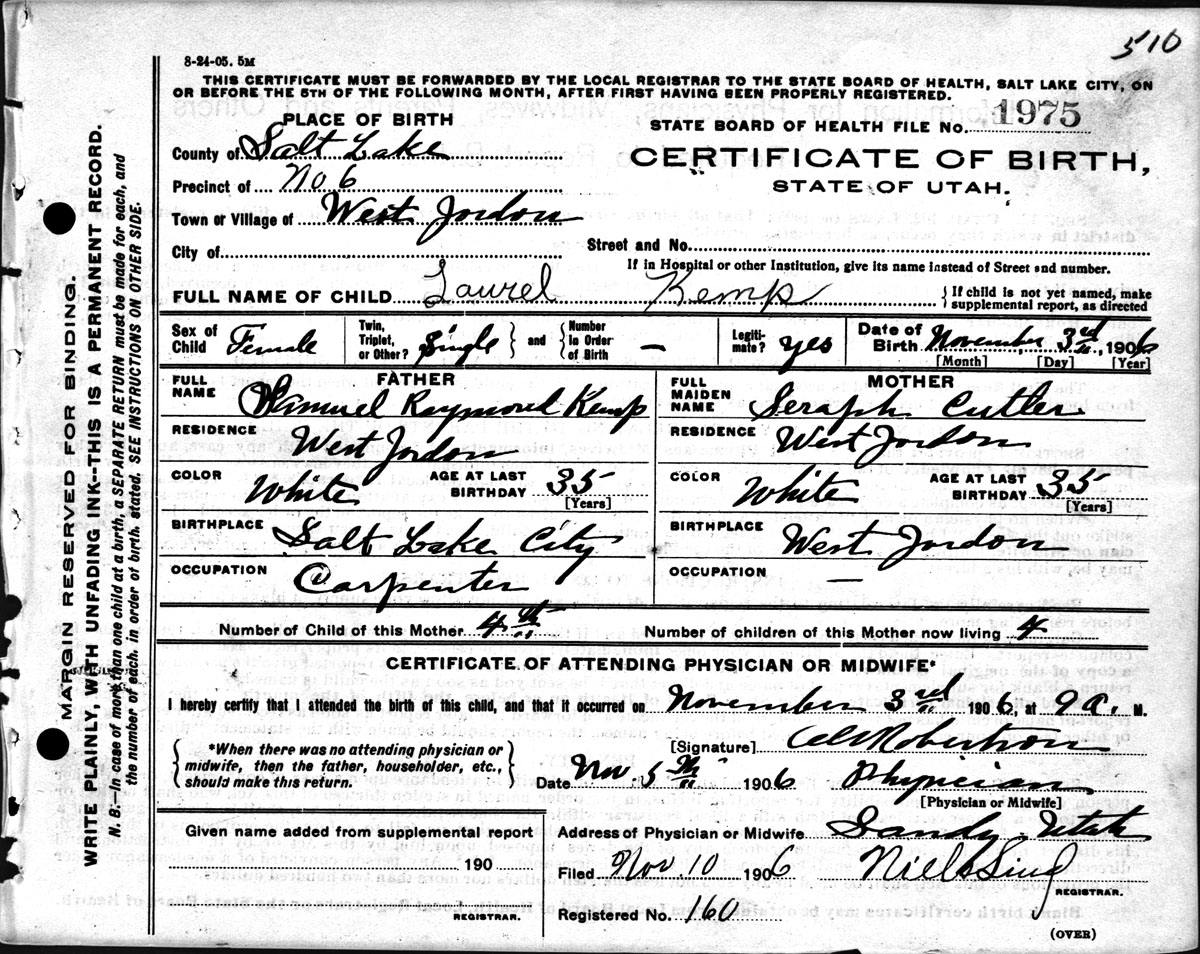 510
8-24-05. 5M
THIS CERTIFICATE MUST BE FORWARDED BY THE LOCAL REGISTRAR TO THE STATE BOARD OF HEALTH, SALT LAKE CITY, ON
OR BEFORE THE 5TH OF THE FOLLOWING MONTH, AFTER FIRST HAVING BEEN PROPERLY REGISTERED.
PLACE OF BIRTH
STATE BOARD OF HEALTH FILE No. 1975
County of Salt Lake
CERTIFICATE OF BIRTH,
Precinct of No 6
STATE OF UTAH.
Town or Village of West Jordon
City of
Street and No.
If in Hospital or other Institution, give its name instead of Street and number.
FULL NAME OF CHILD Laurel Kemp { If child is not yet named, make supplemental report, as directed
Sex of Child Female Twin, Triplet, or Other? Single } and { Number In Order of Birth — Legitimate? yes Date of Birth November 3rd, 1906
[Month] [Day] [Year]
FATHER
MOTHER
FULL NAME Samuel Raymond Kemp
FULL MAIDEN NAME Seraph Cutler
RESIDENCE West Jordon
RESIDENCE West Jordon
COLOR White AGE AT LAST BIRTHDAY 35 [Years]
COLOR White AGE AT LAST BIRTHDAY 35 [Years]
BIRTHPLACE Salt Lake City
BIRTHPLACE West Jordon
OCCUPATION Carpenter
OCCUPATION —
Number of Child of this Mother 4th
Number of children of this Mother now living 4
CERTIFICATE OF ATTENDING PHYSICIAN OR MIDWIFE*
I hereby certify that I attended the birth of this child, and that it occurred on November 3rd 1906, at 9 a. M.
{ *When there was no attending physician or midwife, then the father, householder, etc., should make this return. }
[Signature] Robertson
Date Nov 5th 1906 Physician
[Physician or Midwife]
Given name added from supplemental report
190
REGISTRAR.
Address of Physician or Midwife Sandy Utah
Filed Nov. 10 1906 Niels Lind
REGISTRAR.
Registered No. 160
(OVER)
MARGIN RESERVED FOR BINDING.
WRITE PLAINLY, WITH UNFADING INK--THIS IS A PERMANENT RECORD.
N. B.—In case of more than one child at a birth, a SEPARATE RETURN must be made for each, and
the number of each, in order of birth, stated. SEE INSTRUCTIONS ON OTHER SIDE.